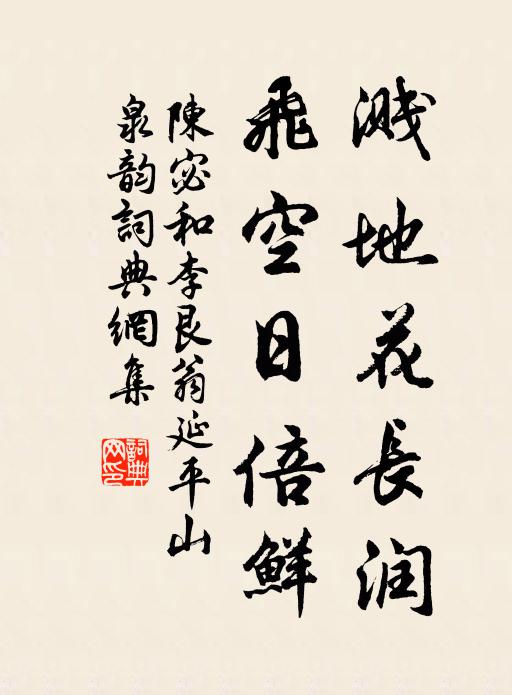 溅地花長润
飛空日倍鮮
陳宓和李艮翁延平山
泉韵詞典網集
詞典網印